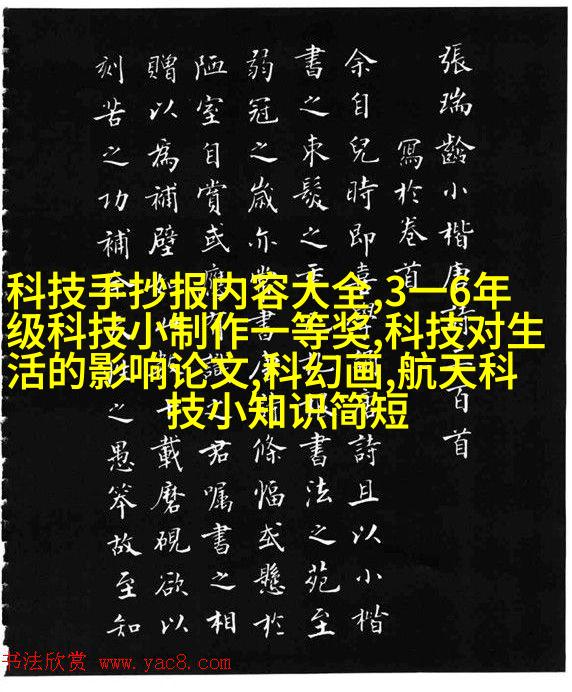 張瑞齡小楷唐詩百首
寫於卷首
余自兒時即喜學詩且以小楷
書之束髮之書法之苑至
弱冠之歲亦書條幅或懸於
陋室自賞或應識君囑書之相
贈以為補壁載磨硯欲以
刻苦之功補之愚笨故至知
科技手抄报内容大全,3一6年
级科技小制作一等奖,科技对生
活的影响论文,科幻画,航天科
技小知识简短
书法欣赏 www.yac8.com